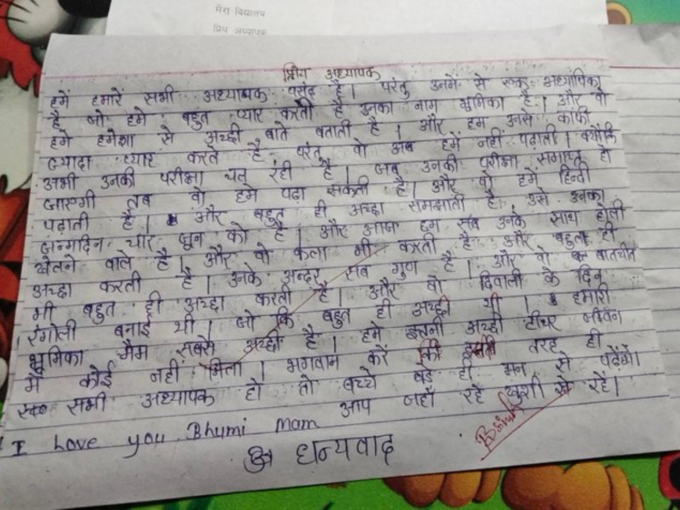 मेरा विद्यालय
प्रिय अध्यापक
प्रिय अध्यापक
हमें हमारे सभी अध्यापक पसंद है। परंतु उनमें से एक अध्यापिका
है जो हमे बहुत प्यार करती है उनका नाम भुमिका है। और वो
हमे हमेशा से अच्छी बाते बताती है। और हम उनसे काफी
ज्यादा प्यार करते है परंतु वो अब हमें नहीं पढ़ाती। क्योंकि
अभी उनकी परीक्षा चल रही है। जब उनकी परीक्षा समाप्त हो
जाएगी तब वो हमे पढ़ा सकती है। और वो हमें हिन्दी
पढ़ाती है। और बहुत ही अच्छा समझाती है। उसे उनका
जन्मदिन चार जून को है। और आज हम सब उनके साथ होली
खेलने वाले है। और वो कला भी करती है और बहुत ही
अच्छा करती है। उनके अन्दर सब गुण है। और वो बातचीत
भी बहुत ही अच्छा करती है। और वो दिवाली के दिन
रंगोली बनाई थी। जो कि बहुत ही अच्छी थी। हमारी
भूमिका मैम सबसे अच्छी है। हमे इतनी अच्छी टीचर जीवन
में कोई नही मिला। भगवान करें कि तरह ही
सभी अध्यापक हो तो बच्चे बड़े ही मन से पढ़ेंगे।
आप जहाँ रहे खुशी से रहें।
I love you Bhumi Mam
धन्यवाद